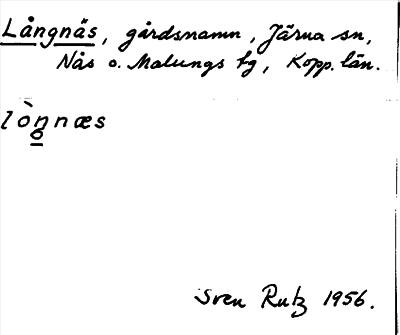 Långnäs, gårdsnamn, Järna sn,
Nås o. Malungs tg, Kopp. län.
lòŋnæs
Sven Rutz 1956.